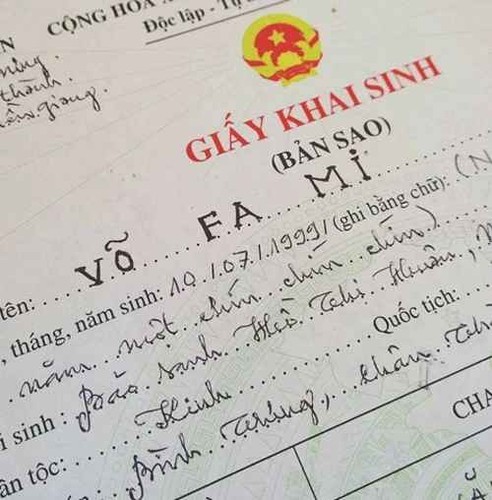 CỘNG HÒA
Độc lập - Tự
thành
GIẤY KHAI SINH
(BẢN SAO)
tên: VÕ FA MI
, tháng, năm sinh: 10 / 07 / 1999 / (ghi bằng chữ): (N
năm một chín chín chín)
i sinh: Bảo sanh Hồ Thị
ân tộc: Kinh Quốc tịch:
Bình Trưng, Châu Th
CHA